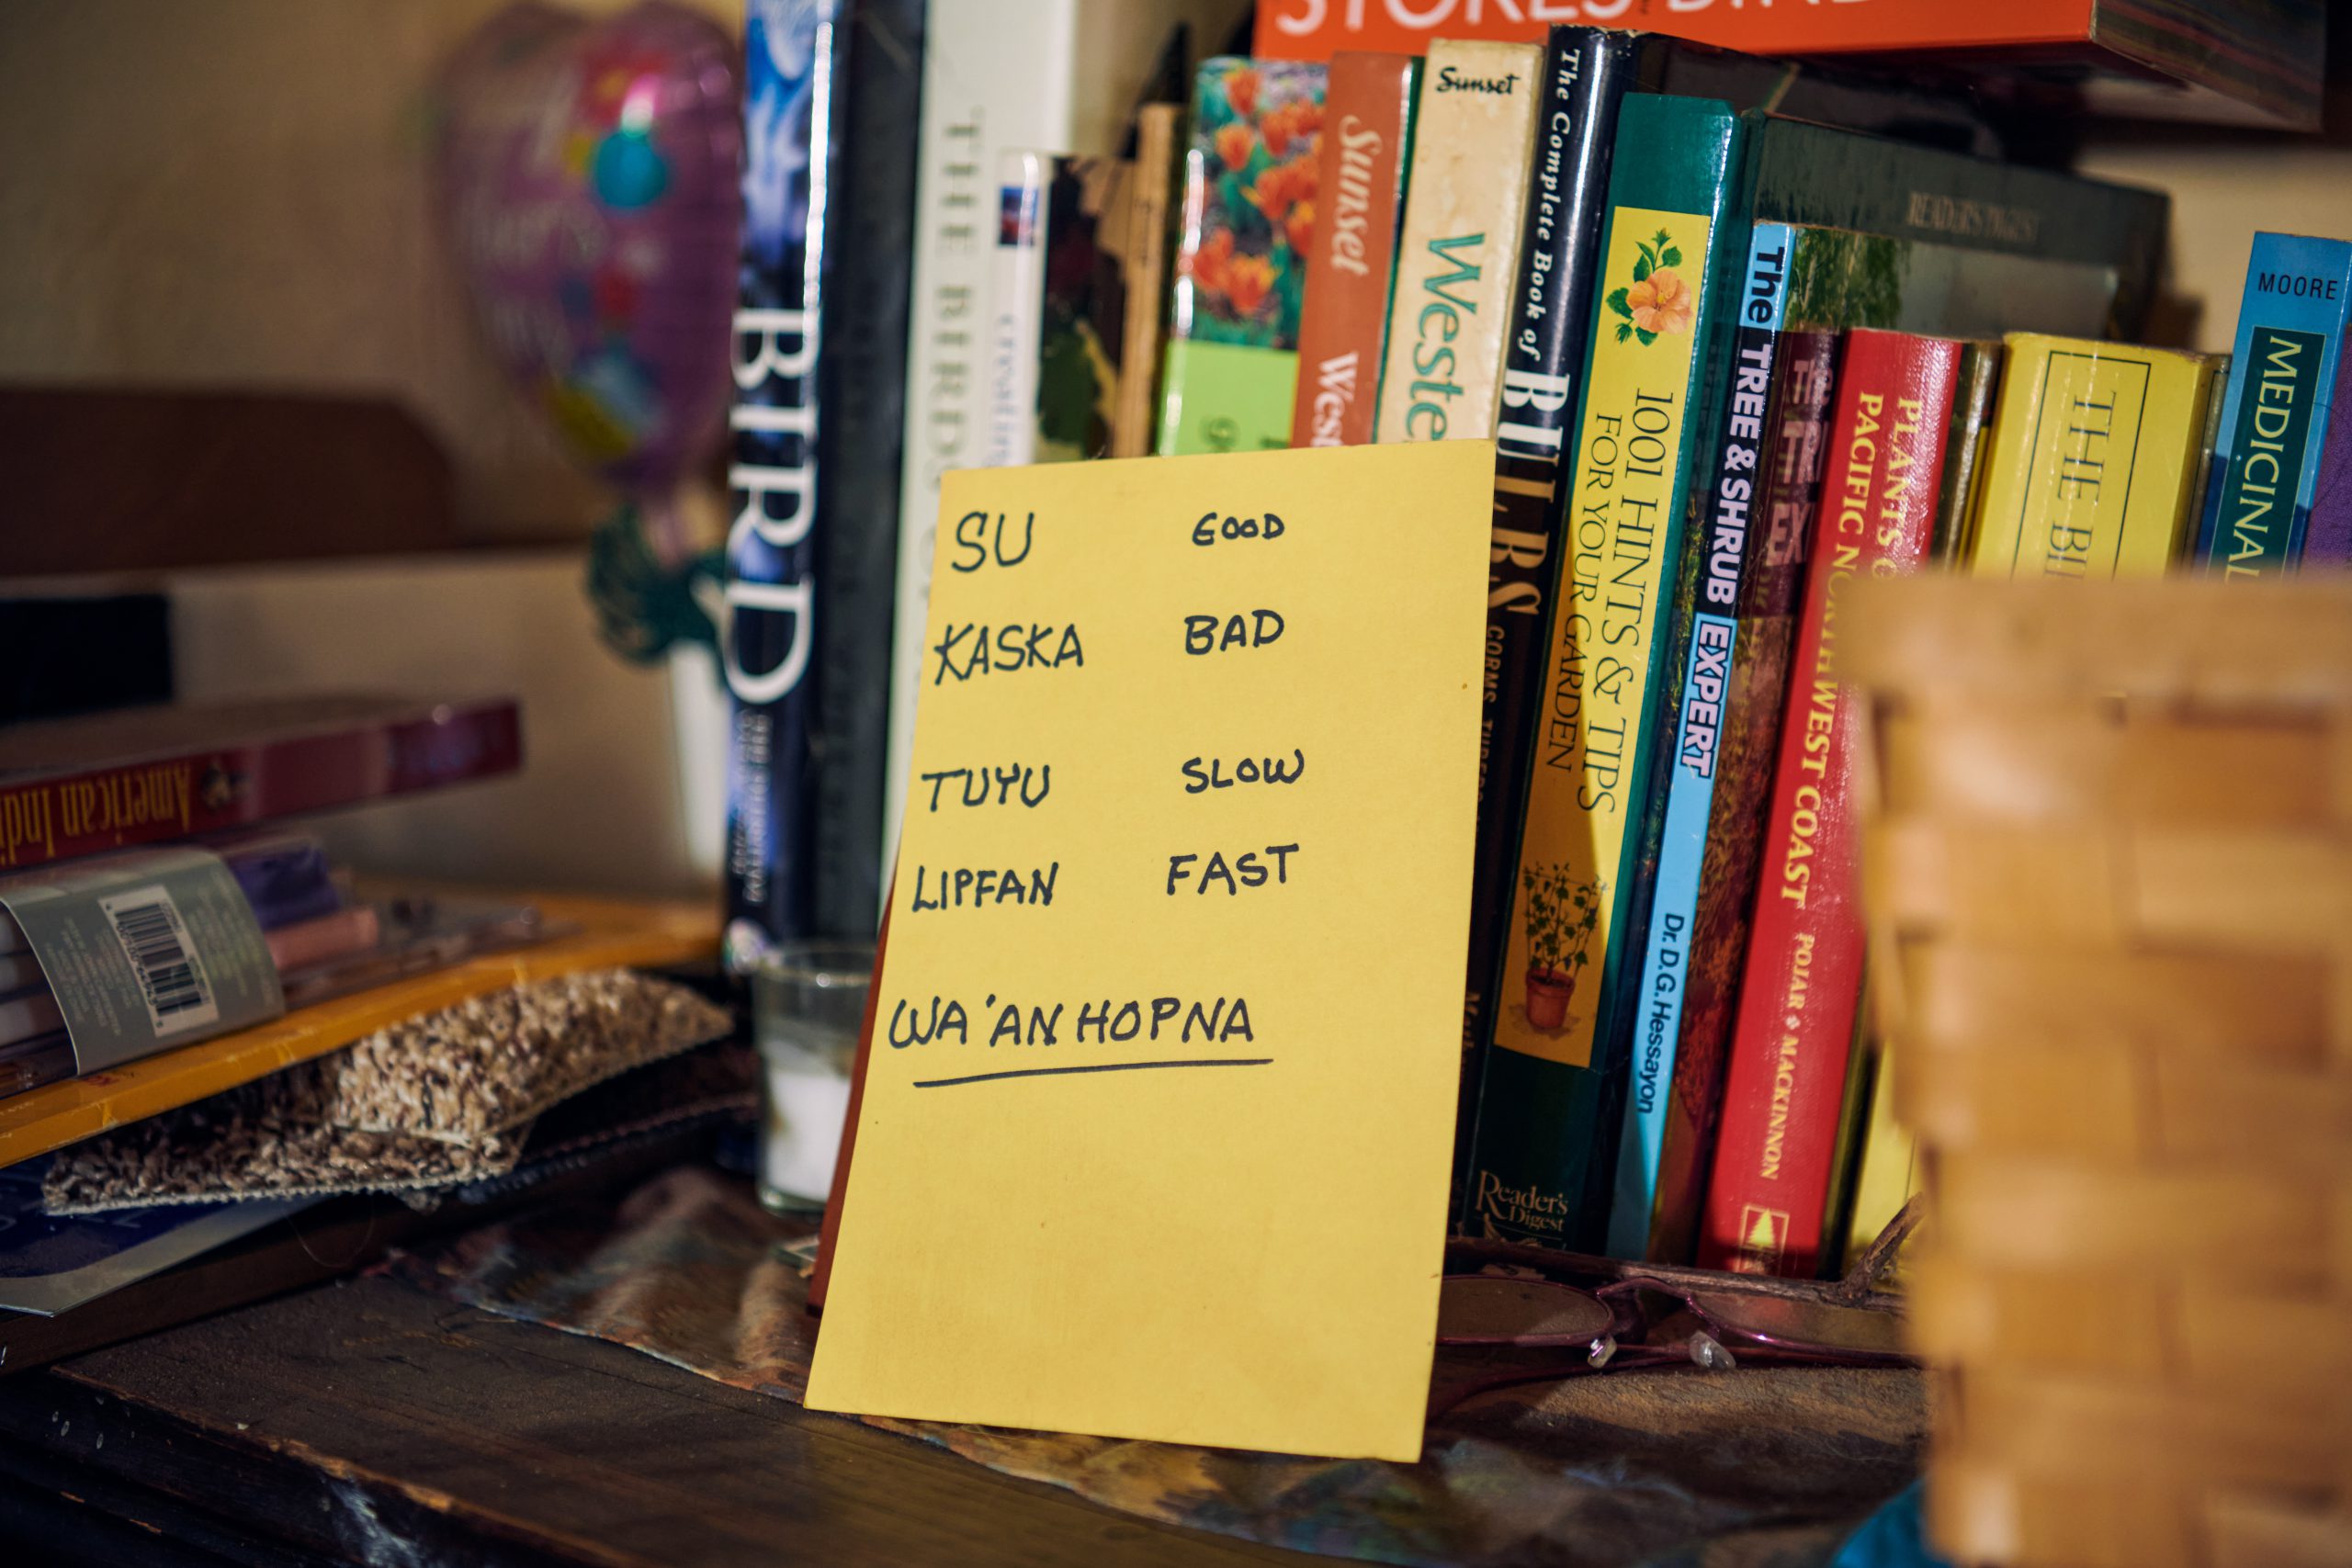 SU GOOD
KASKA BAD
TUYU SLOW
LIPFAN FAST
WA'AN HOPNA
BIRD
THE BIRDS
creating
Sunset
West
Sunset
Weste
The Complete Book of BULBS
CORMS
1001 HINTS & TIPS
FOR YOUR GARDEN
Reader's
Digest
The TREE & SHRUB EXPERT
Dr. D.G. Hessayon
READER'S DIGEST
PLANTS
PACIFIC NORTHWEST COAST
POJAR ◆ MACKINNON
THE
MOORE
MEDICINAL
American Indi